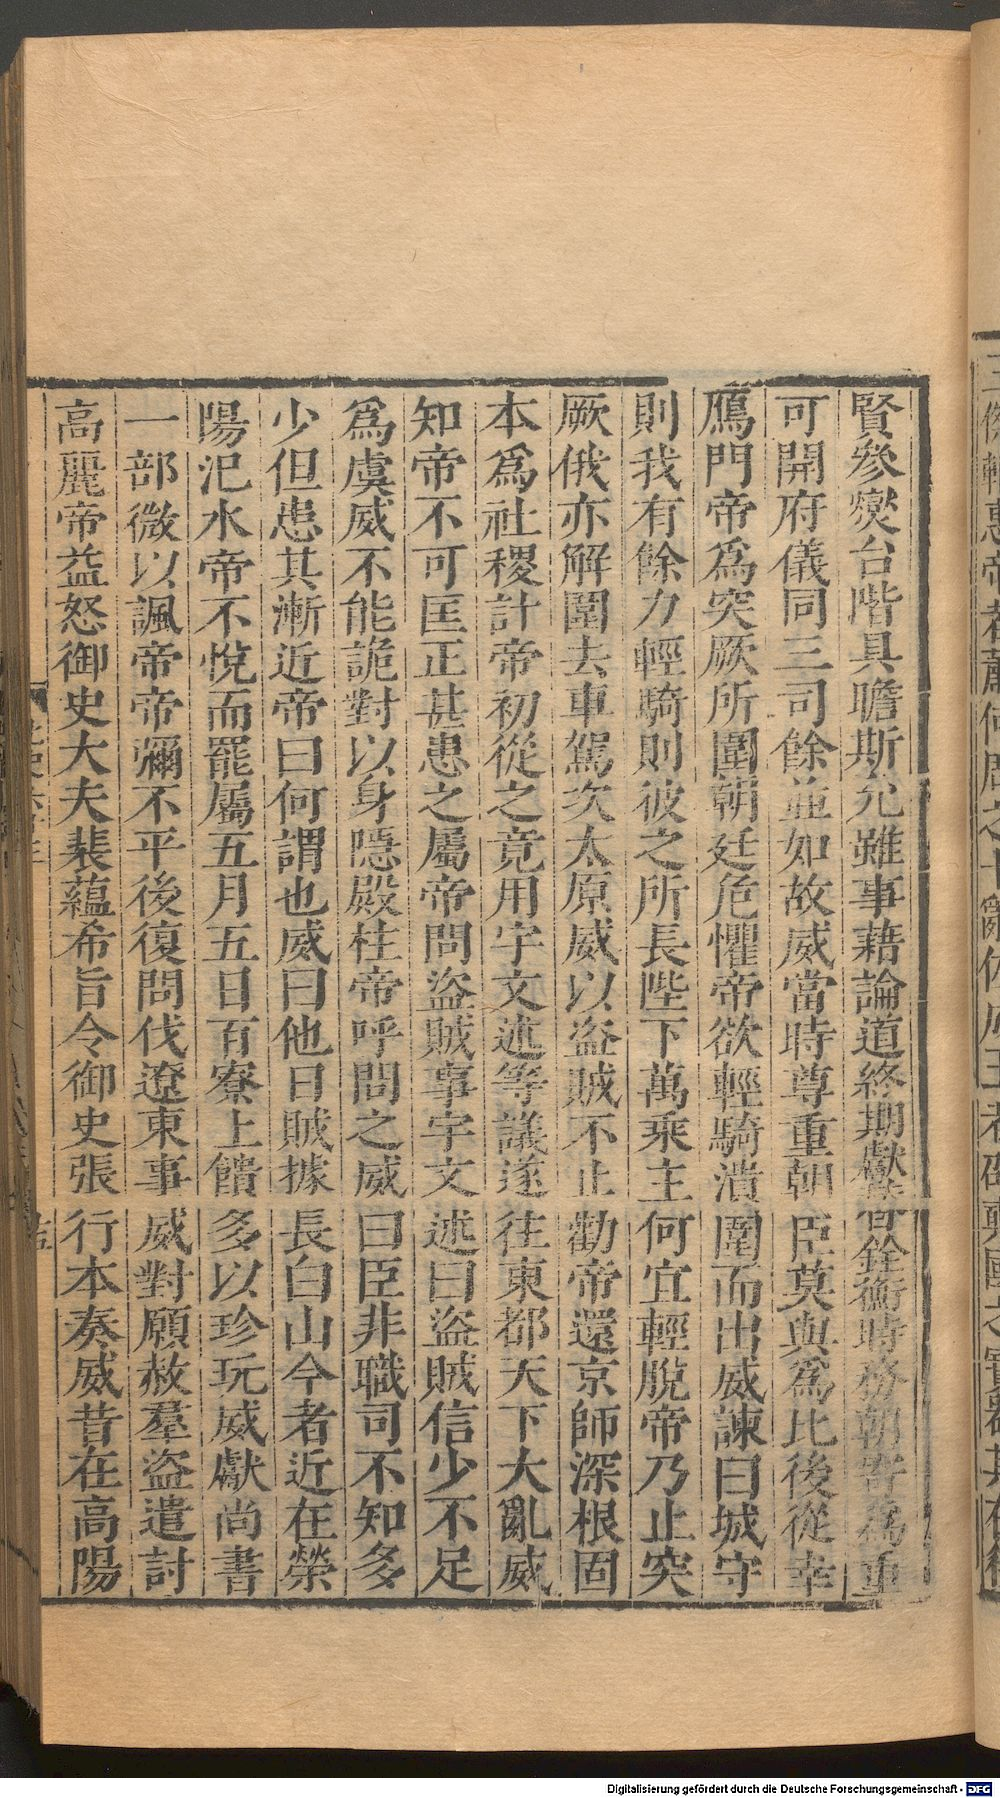 賢參燮台階具瞻斯允雖事藉論道終期獻替銓衡時務朝寄爲重
可開府儀同三司餘並如故威當時尊重朝臣莫與爲比後從幸
鴈門帝爲突厥所圍朝廷危懼帝欲輕騎潰圍而出威諫曰城守
則我有餘力輕騎則彼之所長陛下萬乘主何宜輕脫帝乃止突
厥俄亦解圍去車駕次太原威以盜賊不止勸帝還京師深根固
本爲社稷計帝初從之竟用宇文述等議遂往東都天下大亂威
知帝不可匡正甚患之屬帝問盜賊事宇文述曰盜賊信少不足
爲虞威不能詭對以身隱殿柱帝呼問之威曰臣非職司不知多
少但患其漸近帝曰何謂也威曰他日賊據長白山今者近在滎
陽汜水帝不悅而罷屬五月五日百寮上饋多以珍玩威獻尚書
一部微以諷帝帝彌不平後復問伐遼東事威對願赦羣盜遣討
高麗帝益怒御史大夫裴蘊希旨令御史張行本奏威昔在高陽
Digitalisierung gefördert durch die Deutsche Forschungsgemeinschaft - DFG